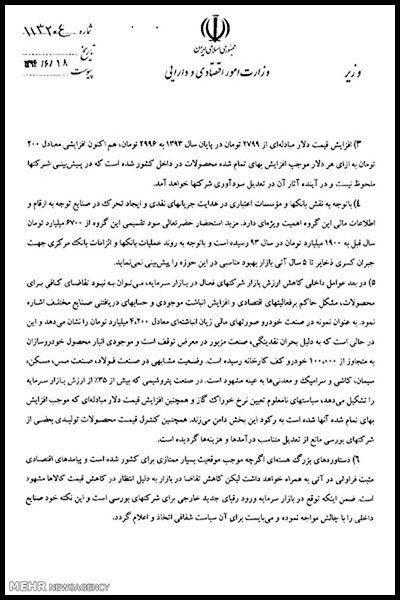 شماره ۱۱۳۲۰۶
تاریخ ۱۳۹۴/۶/۱۸
پیوست
جمهوری اسلامی ایران
وزارت امور اقتصادی و دارایی
وزیر
۳) افزایش قیمت دلار مبادله‌ای از ۲۷۹۹ تومان در پایان سال ۱۳۹۳ به ۲۹۹۶ تومان، هم اکنون افزایشی معادل ۲۰۰
تومان به ازای هر دلار موجب افزایش بهای تمام شده محصولات در داخل کشور شده است که در پیش‌بینی شرکتها
ملحوظ نیست و در آینده آثار آن در تعدیل سودآوری شرکتها خواهد آمد.
۴) باتوجه به نقش بانکها و مؤسسات اعتباری در هدایت جریانهای نقدی و ایجاد تحرک در صنایع توجه به ارقام و
اطلاعات مالی این گروه اهمیت ویژه‌ای دارد. مزید استحضار حضرتعالی سود تقسیمی این گروه از ۶۷۰۰ میلیارد تومان
سال قبل به ۱۹۰۰ میلیارد تومان در سال ۹۳ رسیده است و باتوجه به روند عملیات بانکها و الزامات بانک مرکزی جهت
جبران کسری ذخایر تا ۵ سال آتی بازار بهبود مناسبی در این حوزه را پیش‌بینی نمی‌نماید.
۵) در بعد عوامل داخلی کاهش ارزش بازار شرکتهای فعال در بازار سرمایه، می‌توان به نبود تقاضای کافی برای
محصولات، مشکل حاکم برفعالیتهای اقتصادی و افزایش انباشت موجودی و حسابهای دریافتنی صنایع مختلف اشاره
نمود. به عنوان نمونه در صنعت خودرو صورتهای مالی زیان انباشته‌ای معادل ۴،۲۰۰ میلیارد تومان را نشان می‌دهد و این
در حالی است که به دلیل بحران نقدینگی، صنعت مزبور در معرض توقف است و موجودی انبار محصول خودروسازان
به متجاوز از ۱۰۰،۰۰۰ خودرو کف کارخانه رسیده است. وضعیت مشابهی در صنعت فولاد، صنعت مس، مسکن،
سیمان، کاشی و سرامیک و معدنی‌ها به عینه مشهود است. در صنعت پتروشیمی که بیش از ۳۵٪ از ارزش بازار سرمایه
را تشکیل می‌دهد، سیاستهای نامعلوم تعیین نرخ خوراک گاز و همچنین افزایش قیمت دلار مبادله‌ای که موجب افزایش
بهای تمام شده آنها شده است به رکود این بخش دامن می‌زند. همچنین کنترل قیمت محصولات تولیدی بعضی از
شرکتهای بورسی مانع از تعدیل متناسب درآمدها و هزینه‌ها گردیده است.
۶) دستاوردهای بزرگ هسته‌ای اگرچه موجب موقعیت بسیار ممتازی برای کشور شده است و پیامدهای اقتصادی
مثبت فراوانی در آتی به همراه خواهد داشت لیکن کاهش تقاضا در بازار به دلیل انتظار در کاهش قیمت کالاها مشهود
است. ضمن اینکه توقع در بازار سرمایه ورود رقبای جدید خارجی برای شرکتهای بورسی است و این نکته خود صنایع
داخلی را با چالش مواجه نموده و می‌بایست برای آن سیاست شفافی اتخاذ و اعلام گردد.
MEHR NEWSAGENCY